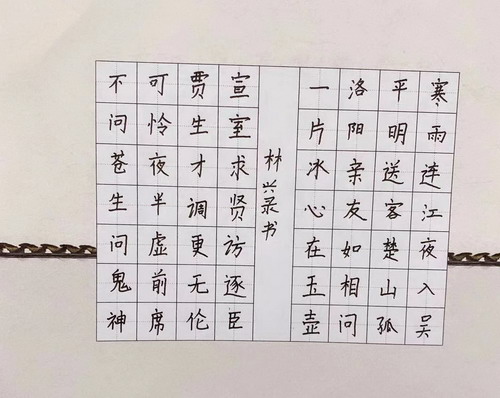 寒雨连江夜入吴
平明送客楚山孤
洛阳亲友如相问
一片冰心在玉壶
林兴录书
宣室求贤访逐臣
贾生才调更无伦
可怜夜半虚前席
不问苍生问鬼神